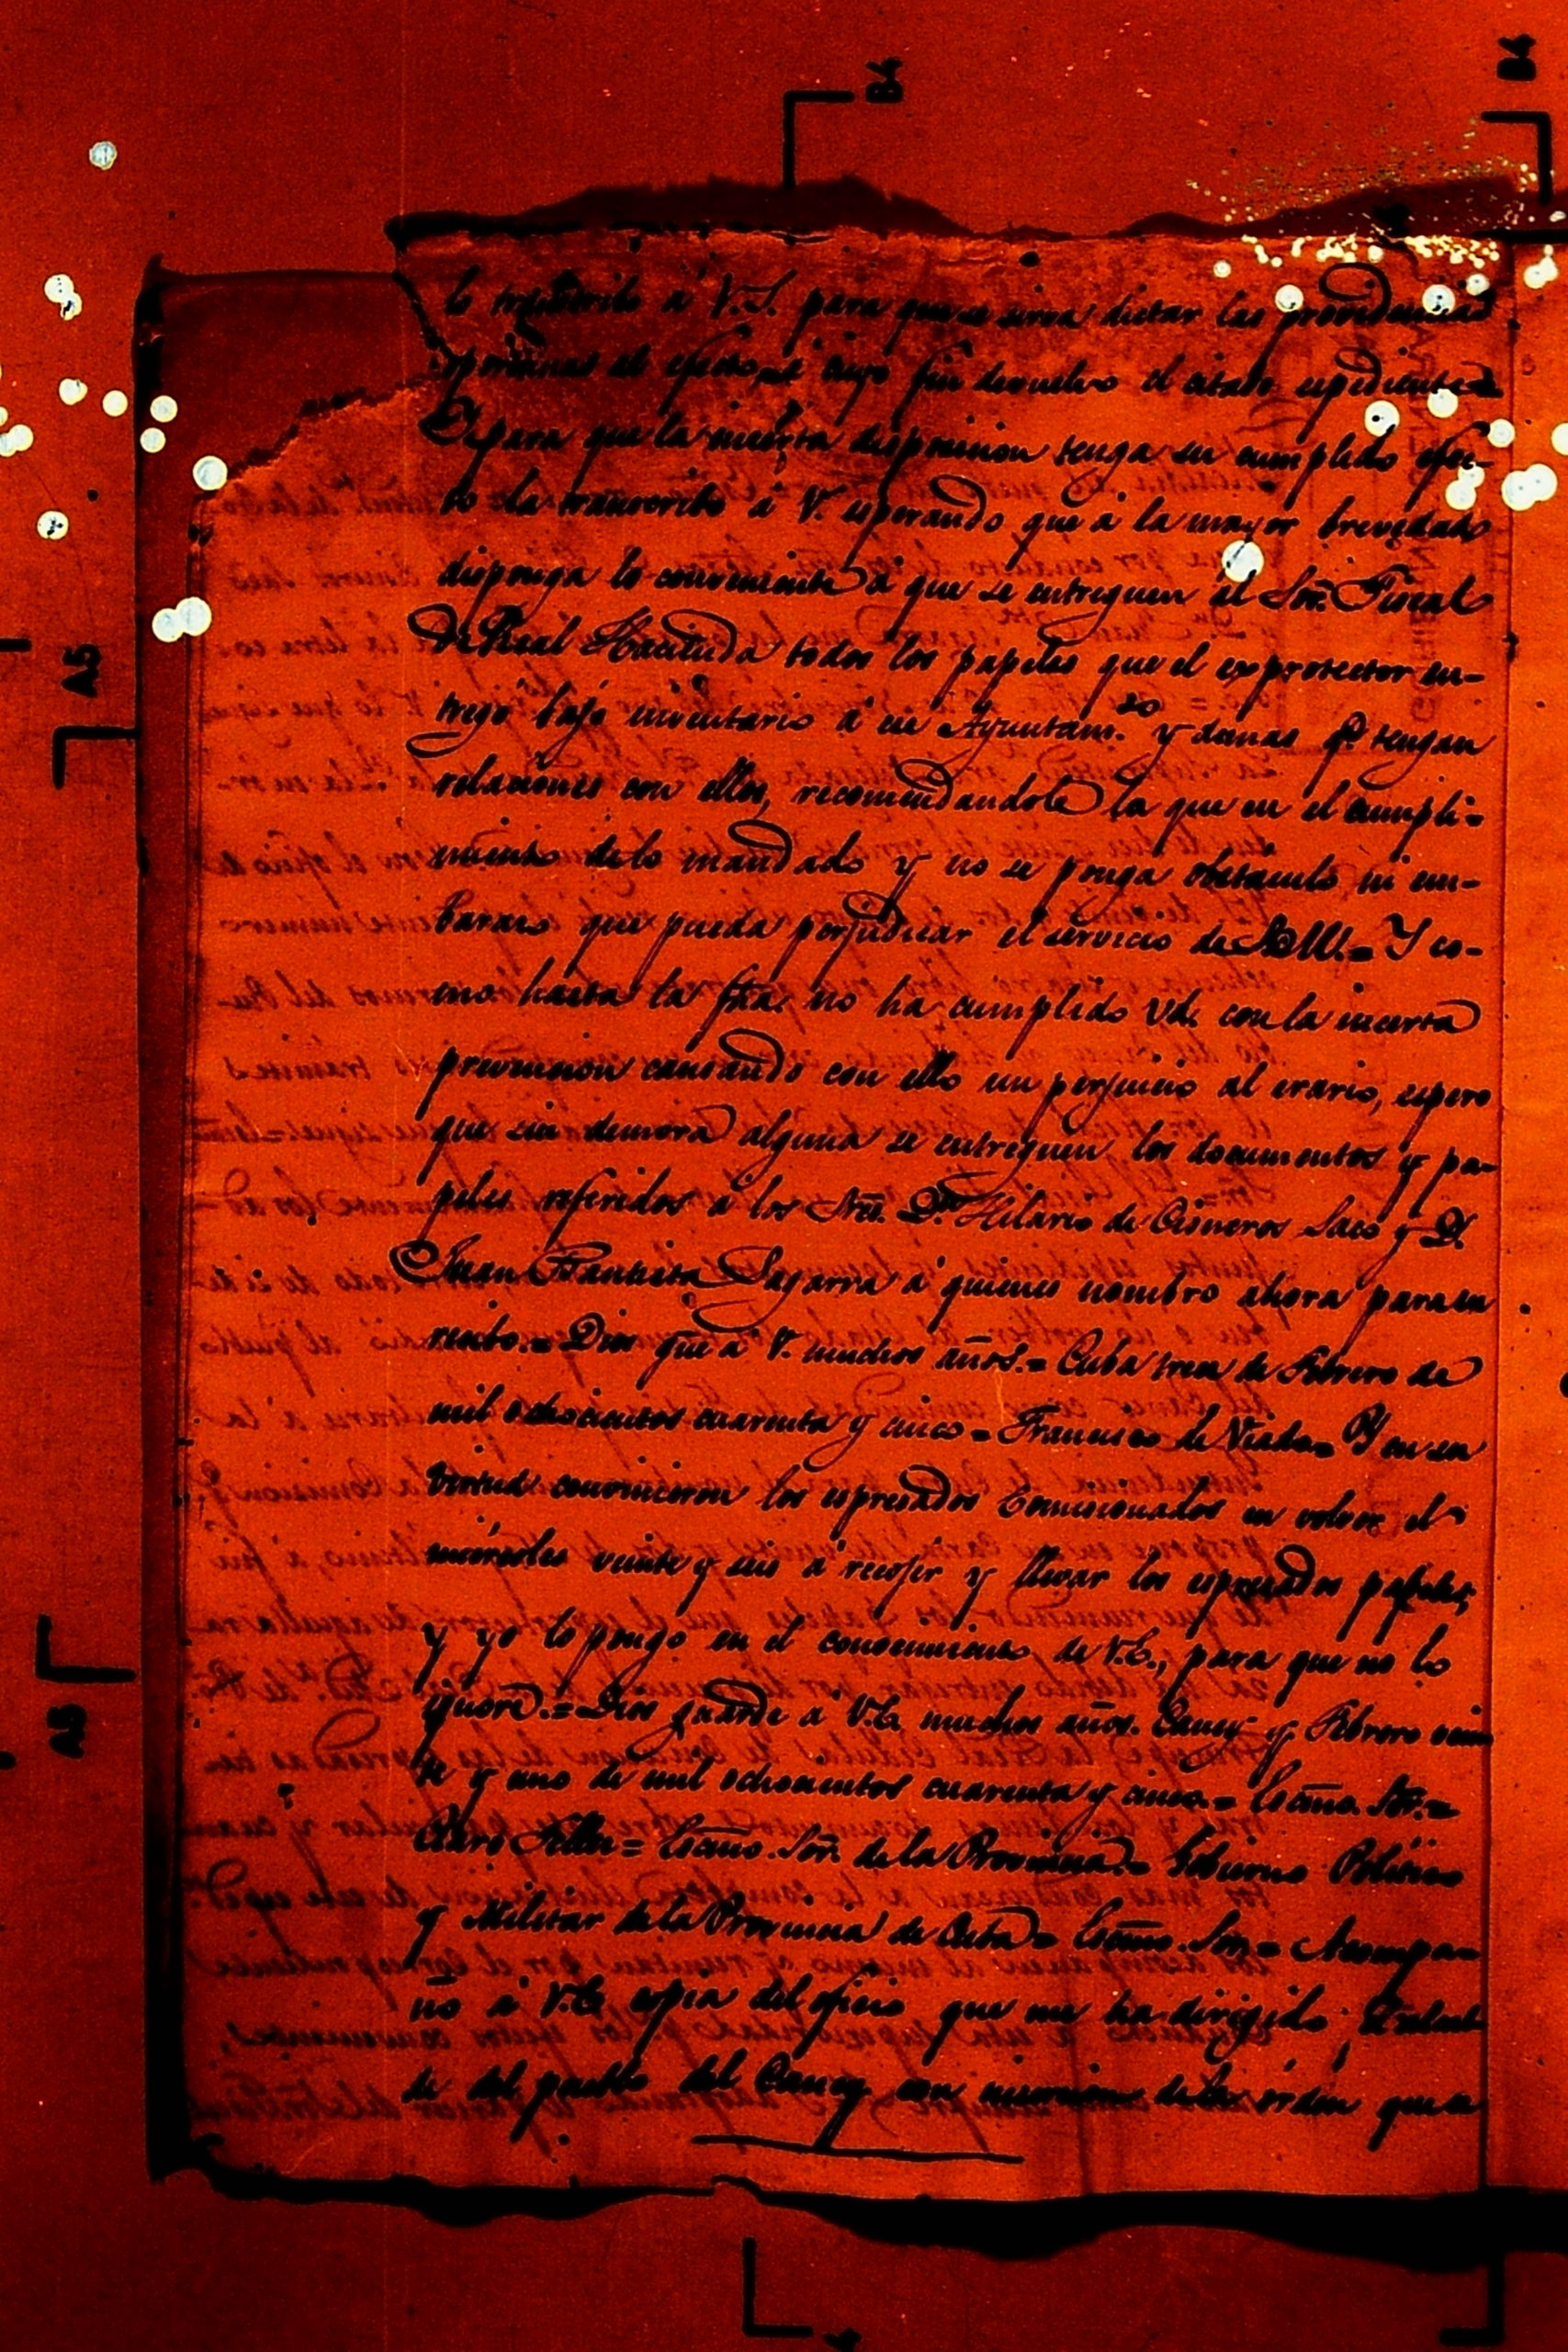 B4
B4
lo transcribo á V.S. para que se sirva dictar las providencias
oportunas al efecto, á cuyo fin devuelvo el citado espediente.=
Y para que la incerta disposicion tenga su cumplido efec-
to la transcribo á V. esperando que á la mayor brevedad
disponga lo conveniente á que se entreguen al Sor. Fiscal
de Real Hacienda todos los papeles que el exprotector en-
tregó bajo inventario á ese Ayuntam.to y demas q.e tengan
relaciones con ellos, recomendandole la que en el cumpli-
miento de lo mandado y no se ponga obstaculo ni em-
barazo que pueda perjudicar el servicio de S.M.= Y co-
mo hasta la fha. no ha cumplido Vd. con la incerta
prevencion causando con ello un perjuicio al erario, espero
que sin demora alguna se entreguen los documentos y pa-
peles referidos á los Sres. D.n Hilario de Cisneros Saco y D.
Juan Bautista Sagarra á quienes nombro ahora para su
recibo.= Dios gue á V. muchos años.= Cuba trece de Febrero de
mil ochocientos cuarenta y cinco= Francisco de Viado= Y en su
virtud convinieron los espresados Comisionados en volver el
miércoles veinte y seis á recojer y llevar los espresados papeles,
y yo lo pongo en el conocimiento de V.E., para que no lo
ygnore.= Dios guarde á V.E. muchos años. Caney y Febrero vein
te y uno de mil ochocientos cuarenta y cinco.= Escmo. Sor.=
Claro Téllez= Escmo. Sor. de la Provincia.= Gobierno Político
y Militar de la Provincia de Cuba= Escmo. Sor.= Acompa-
ño á V.E. copia del oficio que me ha dirigido el alcal
de del pueblo del Caney con incercion de la órden que
A5
A5